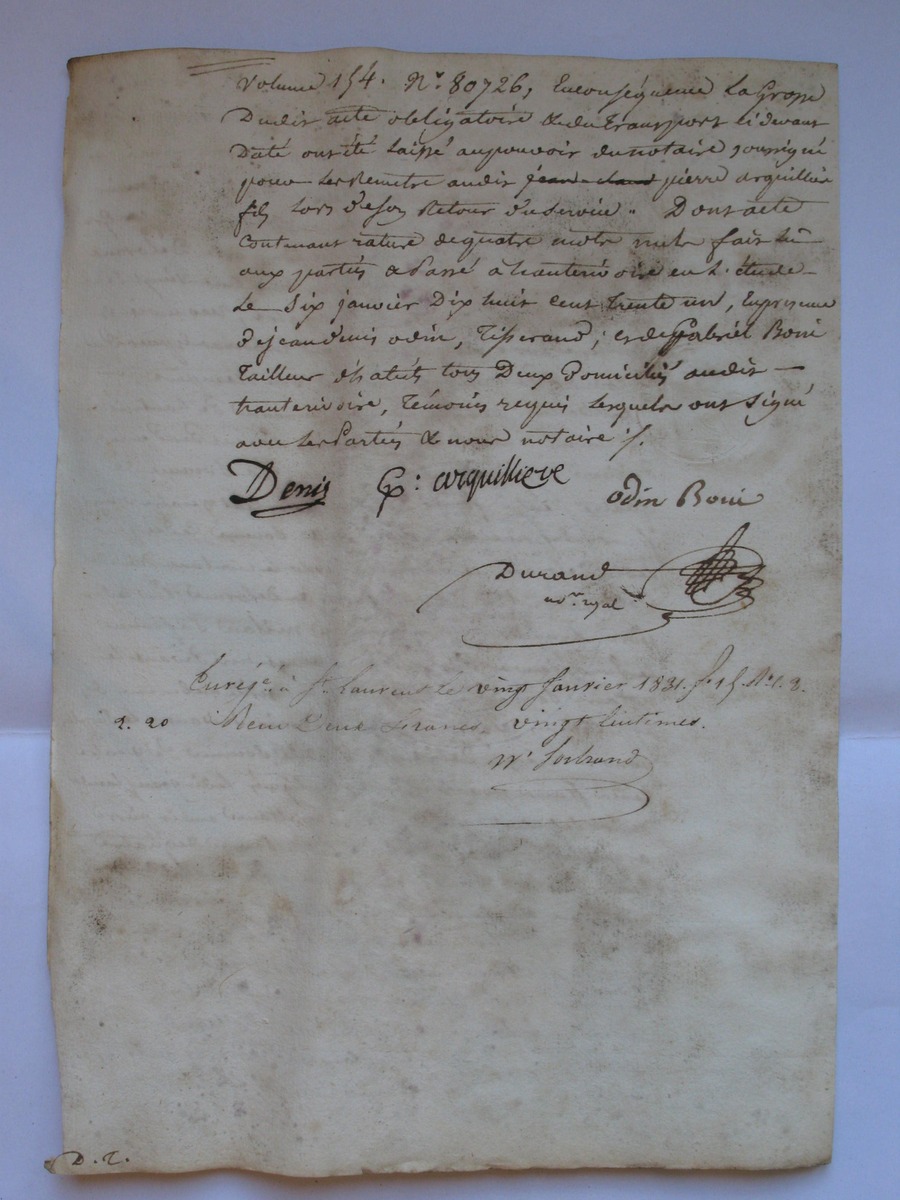 Volume 154. N° 80726, En conséquence la Grosse
Dudit acte obligatoire & du transport ci devant
Daté ont été laissé au pouvoir du notaire soussigné
pour les Remettre audit jean claud pierre arquilliére
fils lors de son Retour du service. Dont acte
Contenant rature de quatre mots nuls fait lu
aux parties & Passé a hauterivoire en l'étude
Le Six janvier Dix huit cent trente un, En presence
de jean denis odin, Tisserand, et de Gabriel Boni
Tailleur d'habits tous Deux Domiciliés audit
hauterivoire, Témoins requis lesquels ont Signé
avec les Parties & nous notaire ./.
Denis P: arquilliere odin Boni
Durand
no.re royal
Enregé. à St. Laurent le vingt Janvier 1831. f° 15. R° C. 8.
2. 20 Reçu Deux francs vingt Centimes.
D. T.